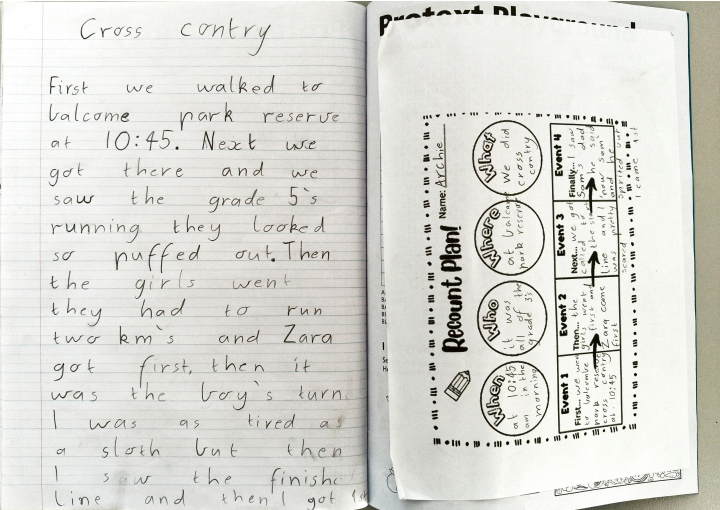 Cross contry
First we walked to
balcome park reserve
at 10:45. Next we
got there and we
saw the grade 5's
running they looked
so puffed out. Then
the girls went
they had to run
two km's and Zara
got first, then it
was the boy's turn
I was as tired as
a sloth but then
I saw the finish
line and then I got 1st
Pretext Playground
Recount Plan!
Name: Archie
When
at 10:45
am in the
morning
Who
it was
all of the
grade 3s
Where
at balcome
park reserve
What
we did
cross
contry
Event 1
First... we went
to
park reserve
cross contry
at 10:45
Event 2
Then... the
girls went
first and
Zara come
first
Event 3
Next... we got
called to
the start
line and I
was pretty
scared
Event 4
Finally... I saw
Sam's dad
he said
now Sam
and he
sprinted but
I came 1st